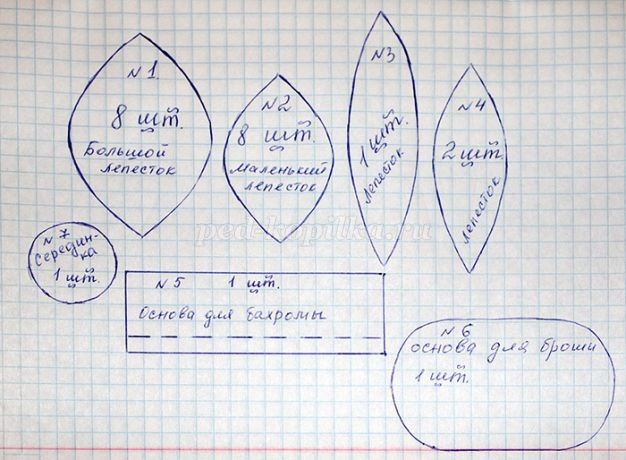 №1.
8 шт.
Большой
лепесток
№2
8 шт.
Маленький
лепесток
№3
1 шт.
лепесток
№4
2 шт.
лепесток
№7
Середин-
ка
1 шт.
№5 1 шт.
Основа для бахромы
№6
основа для броши
1 шт.
ped-kopilka.ru